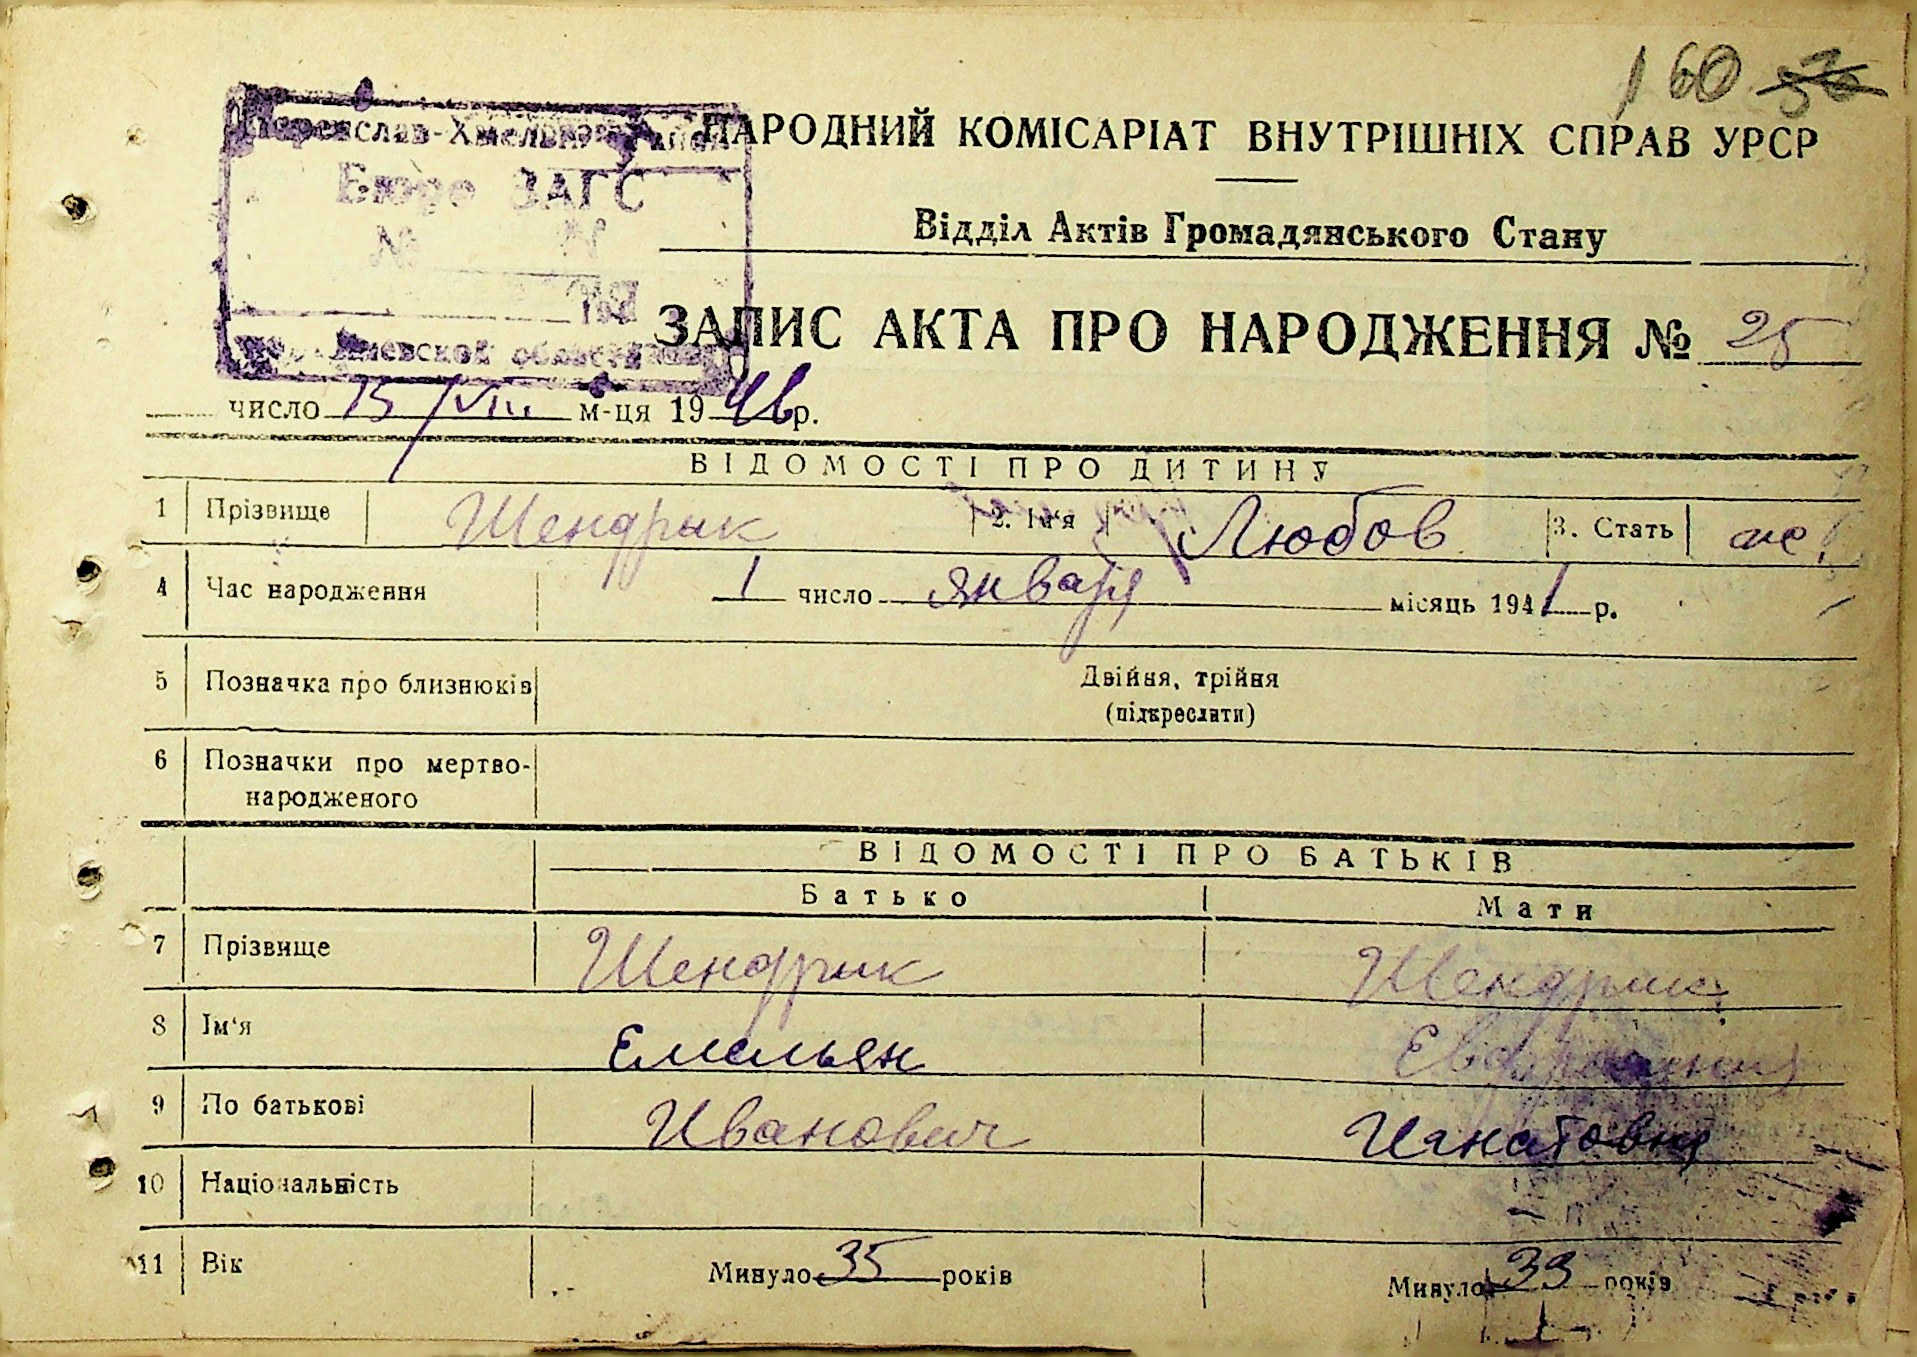 160 56
Переяслав-Хмельниц
Бюро ЗАГС
№
Киевской области
НАРОДНИЙ КОМІСАРІАТ ВНУТРІШНІХ СПРАВ УРСР
Відділ Актів Громадянського Стану
ЗАПИС АКТА ПРО НАРОДЖЕННЯ № 25
число 15/VIII м-ця 1946 р.
ВІДОМОСТІ ПРО ДИТИНУ
1 Прізвище Шендрик 2. Ім'я Любов 3. Стать ж.
4 Час народження 1 число января місяць 1941 р.
5 Позначка про близнюків Двійня, трійня
(підкреслити)
6 Позначки про мертво-
народженого
ВІДОМОСТІ ПРО БАТЬКІВ
Батько Мати
7 Прізвище Шендрик Шендрик
8 Ім'я Емельян
9 По батькові Иванович Игнатовна
10 Національність
11 Вік Минуло 35 років Минуло 33 років